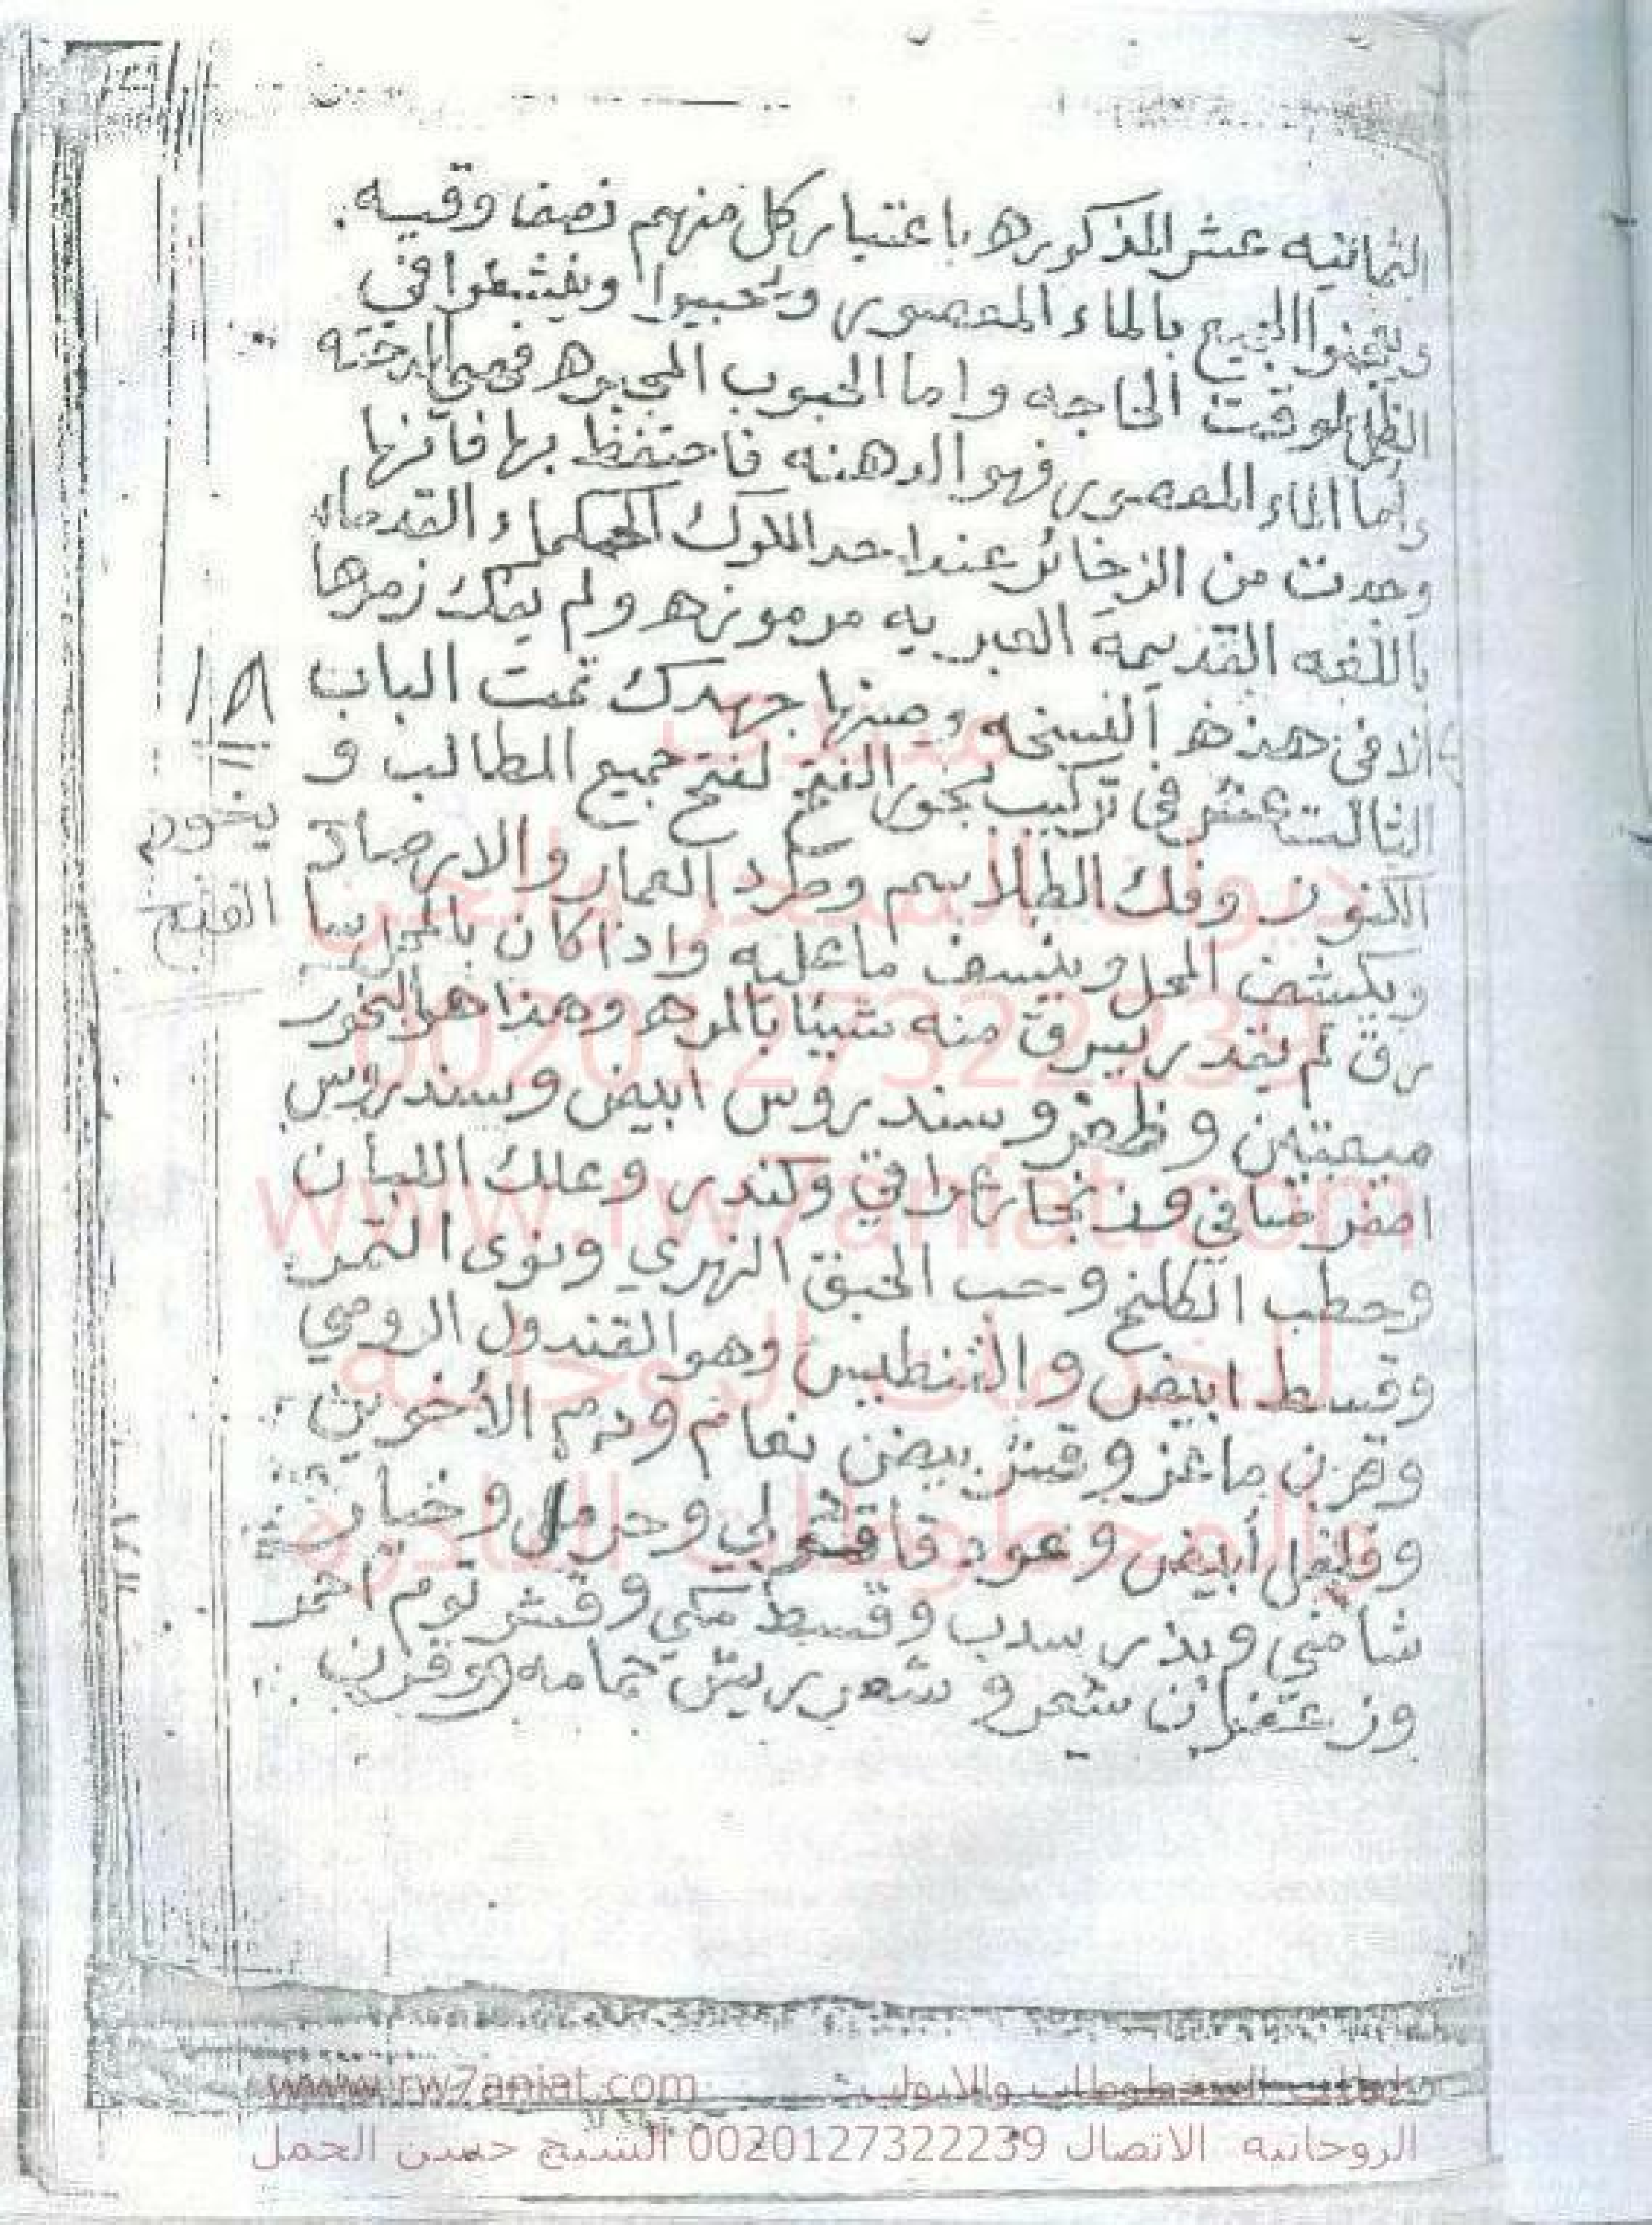 الثمانيه عشر المذكوره باعتبار كل منهم نصف وقيه
ويعجنوا الجميع بالماء المعصور ويحببوا وينشفوا في
الظل لوقت الحاجه واما الحبوب المجبره فهي الدخنه
واما الماء المعصور فهو الدهنه فاحتفظ بها فانها
وجدت من الزخائر عند احد الملوك الحكماء القدماء
باللغه القديمة العبريه مرموزه ولم يفك رمزها
الا في هذه النسخه وصنها جهدك تمت الباب
١٨
الثالث عشر في تركيب بخور الفتح لفتح جميع المطالب و
بخور
الكنوز وفك الطلاسم وطرد العمار والارصاد
الفتح
ويكشف المحل وينسف ما عليه واذا كان بالمحل سا
رق لم يقدر يسرق منه شيئا بالمره وهذا هو البخور
ميعتين وظفر وسندروس ابيض وسندروس
اصفر صافي وزنجار عراقي وكندر وعلك اللبان
وحطب الكلخ وحب الحبق النهري ونوى التمر
وقسط ابيض والقنطيس وهو القندول الرومي
وقرن ماعز وقشر بيض نعام ودم الأخوين
وفلفل أبيض وعود قاقلي وحرمل وخيار
شامي وبذر سدب وقسط مكي وقشر توم احمر
وزعفران شعر و ريش حمامه وقرن
منتدى
ديوان السحر والجن
0020127322239
www.rw7aniat.com
للخدمات الروحانيه
والمخطوطات النادره
www.rw7aniat.com
الروحانيه الاتصال 0020127322239 الشيخ حسن الجمل